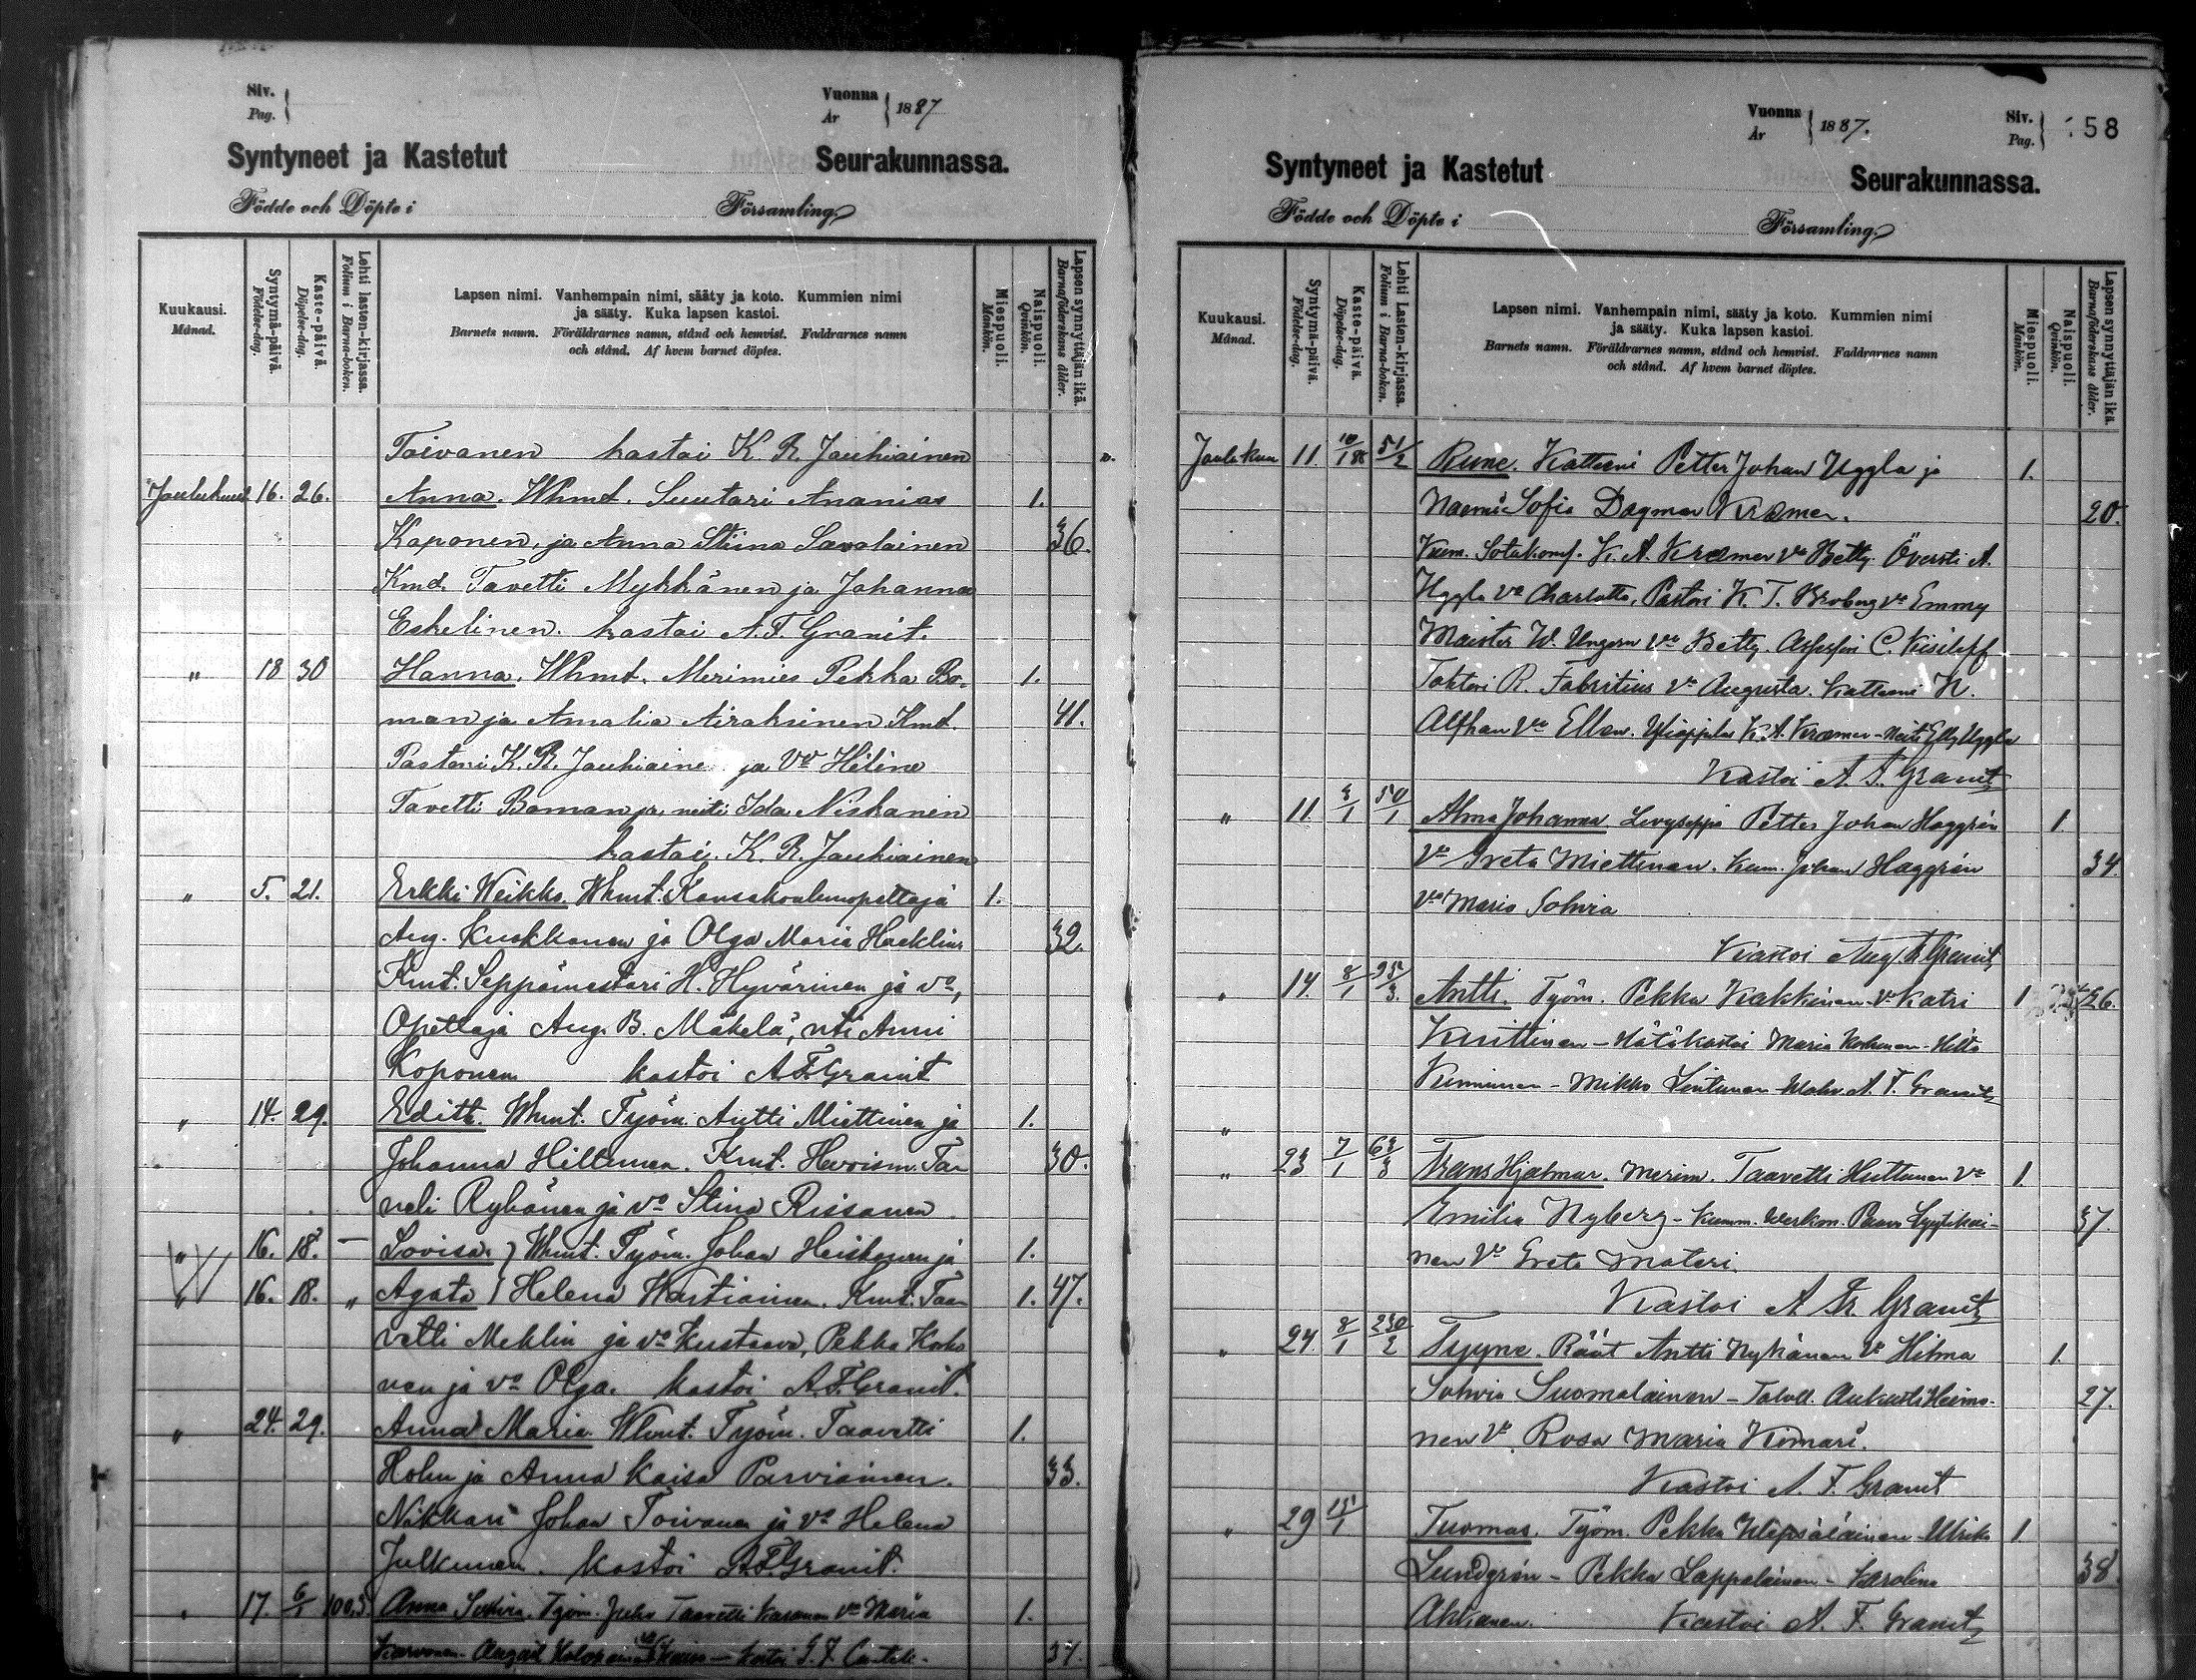 Siv.
Pag.
Vuonna
År
1887
Syntyneet ja Kastetut
Seurakunnassa.
Födde och Döpte i
Församling.
Kuukausi.
Månad.
Syntymä-päivä.
Födelse-dag.
Kaste-päivä.
Döpelse-dag.
Lehti lasten-kirjassa.
Folium i Barna-boken.
Lapsen nimi. Vanhempain nimi, sääty ja koto. Kummien nimi
ja sääty. Kuka lapsen kastoi.
Barnets namn. Föräldrarnes namn, stånd och hemvist. Faddrarnes namn
och stånd. Af hvem barnet döptes.
Miespuoli.
Mankön.
Naispuoli.
Qvinkön.
Lapsen synnyttäjän ikä.
Barnaföderskans ålder.
Toivanen kastoi K. R. Jauhiainen
Joulukuu 16. 26. Anna. Whmt. Suutari Ananias 1.
Koponen, ja Anna Stiina Savolainen 36.
Kmd. Tavetti Mykkänen ja Johanna
Eskelinen. kastoi A. F. Granit.
" 18 30 Hanna. Whmt. Merimies Pekka Bo- 1.
man ja Amalia Airaksinen Kmt. 41.
Pastori K. R. Jauhiaine ja Vo Heline
Tavetti Boman ja neiti Ida Niskanen
kastoi. K. R. Jauhiainen
" 5. 21. Erkki Weikko. Whmt. Kansakoulunopettaja 1.
Aug. Kuokkanen ja Olga Maria Hacklin 32.
Kmt. Seppämestari H. Hyvärinen ja vo,
Opettaja Aug. B. Mäkelä, nti Anni
Koponen kastoi A. F. Granit
" 14. 29. Edith. Whmt. Työm. Antti Miettinen ja 1.
Johanna Hiltunen. Kmt. Ta- 30.
neli Ryhänen ja vo Stina Rissanen
" 16. 18. — Lovisa. } Whmt. Työm. Johan Heiskanen ja 1.
" 16. 18. " Agata } Helena Wartiainen. Kmt. Taa- 1. 47.
vetti Meklin ja vo Kustaava, Pekka Korho
nen ja vo Olga. kastoi A. F. Granit.
" 24. 29. Anna Maria Whmt. Työm. Taavetti 1.
ja Anna Kaisa Parviainen. 33.
Nikkari Johan Toivanen ja vo Helena
Julkunen. kastoi A. F. Granit.
" 17. 6/1 Anna Työm. Juho Taavetti vo Maria 1.
Karvonen 37.
Vuonna
År
1887.
Siv.
Pag.
58
Syntyneet ja Kastetut
Seurakunnassa.
Födde och Döpte i
Församling.
Kuukausi.
Månad.
Syntymä-päivä.
Födelse-dag.
Kaste-päivä.
Döpelse-dag.
Lehti Lasten-kirjassa.
Folium i Barna-boken.
Lapsen nimi. Vanhempain nimi, sääty ja koto. Kummien nimi
ja sääty. Kuka lapsen kastoi.
Barnets namn. Föräldrarnes namn, stånd och hemvist. Faddrarnes namn
och stånd. Af hvem barnet döptes.
Miespuoli.
Mankön.
Naispuoli.
Qvinkön.
Lapsen synnyttäjän ikä.
Barnaföderskans ålder.
Joulukuu 11. 10/1 88 51/2 Rune. Katteini Petter Johan Uggla ja 1.
Naemi Sofia Dagmar Kræmer. 20.
Kum. K. A. Kræmer vo Betty. Översti A.
Uggla vo Charlotta, Pastori K. T. Broberg vo Emmy
Maister W. Ungern vo Betty. C. Kisileff
Tohtori R. Fabritius vo Augusta. Katteini N.
Alfthan vo Ellen. K. A. Kræmer - Neiti Elly Uggla
Kastoi A. F. Granit
" 11. 8/1 50/1 Alma Johanna Levyseppä Petter Johan Haggrén 1
vo Greta Miettinen. Kum. Johan Haggrén 34.
vo Maria Sohvia
Kastoi Aug. F. Granit
" 14. 8/1 95/3. Antti. Työm. Pekka Kakkinen vo Katri 1 26.
Kunttinen - Hätäkastoi Maria
Mikko Lintunen A. F. Granit
"
" 23 7/1 63/3 Frans Hjalmar. Merim. Taavetti Huttunen vo 1.
Emilia Nyberg - Kumm. Paavo Lyytikäi- 37.
nen vo Greta Matari.
Kastoi A. Fr. Granit
" 24. 8/1 230/2 Tyyne. Räät Antti Nykänen vo Hilma 1.
Sohvia Suomalainen - Aukusti Heimo- 27.
nen vo Rosa Maria Komari.
Kastoi A. F. Granit
" 29 15/1 Tuomas. Työm. Pekka Wepsäläinen - Ulrika 1.
Lundgrén - Pekka Lappalainen - Karolina 38.
Akkanen. Kastoi A. F. Granit